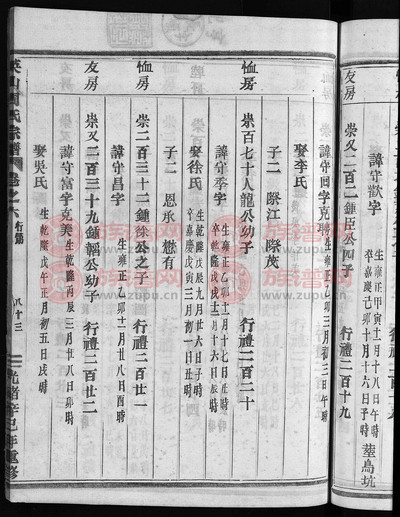 友房
崇又二百二鍾臣公四子
行禮二百十九
諱守歡字
生雍正甲寅十一月十八日午時
卒嘉慶己卯十月十六日子時
葬鳥坑
諱守回字克
娶李氏
恤房
崇百七十人龍公幼子
行禮二百二十
子二 際江 際茂
諱守季字
生雍正乙卯十二月十七日
娶徐氏
生乾隆戊辰九月廿六日寅時
卒嘉慶戊寅三月初一日丑時
子二 恩承 懋有
恤房
崇二百三十二鍾徐公之子
行禮二百廿一
諱守昌字
生雍正乙卯十一月廿八日酉時
友房
崇又二百三十九鍾韜公幼子
行禮二百廿二
諱守富字克美
生乾隆丙辰三月八日卯時
娶吳氏
生乾隆戊午正月初五日戌時
英山周氏宗譜
卷之六
行第
八十三
光緒辛巳年重修
族譜网
www.zupu.cn